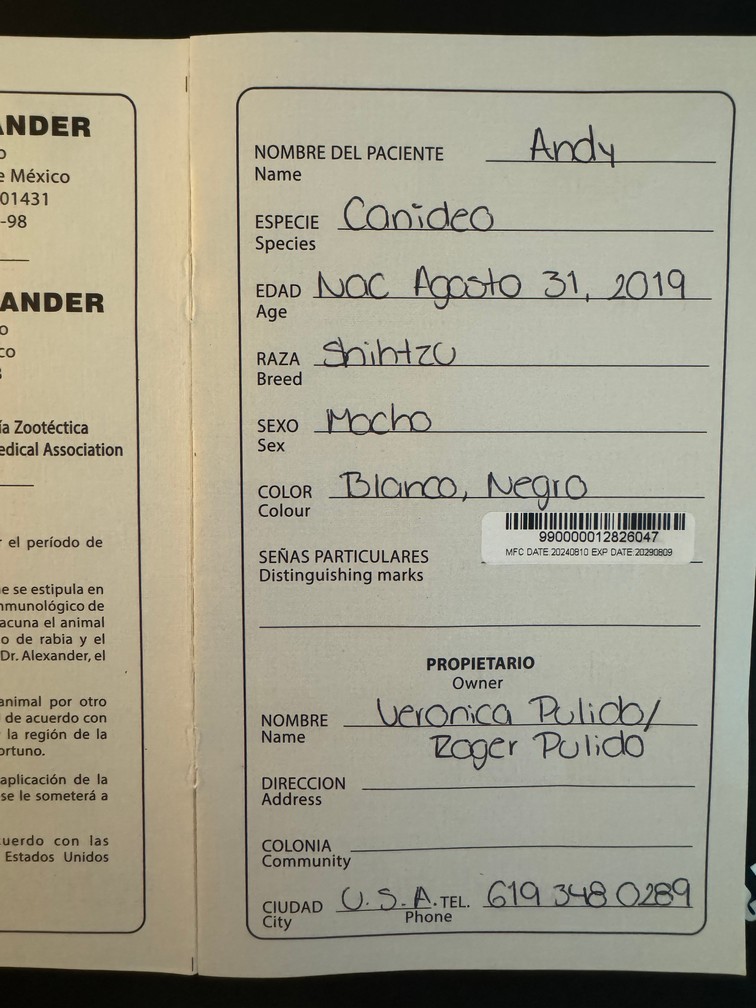 ANDER
o
e México
01431
-98
ANDER
o
co
ía Zootéctica
edical Association
r el período de
e se estipula en
nmunológico de
acuna el animal
o de rabia y el
Dr. Alexander, el
animal por otro
de acuerdo con
la región de la
ortuno.
aplicación de la
se le someterá a
cuerdo con las
Estados Unidos
NOMBRE DEL PACIENTE Andy
Name
ESPECIE Canideo
Species
EDAD Nac Agosto 31, 2019
Age
RAZA Shihtzu
Breed
SEXO Macho
Sex
COLOR Blanco, Negro
Colour
990000012826047
MFC DATE:20240810 EXP DATE:20290809
SEÑAS PARTICULARES
Distinguishing marks
PROPIETARIO
Owner
NOMBRE Veronica Pulido/
Name Roger Pulido
DIRECCION
Address
COLONIA
Community
CIUDAD U.S.A. TEL. 619 348 0289
City Phone